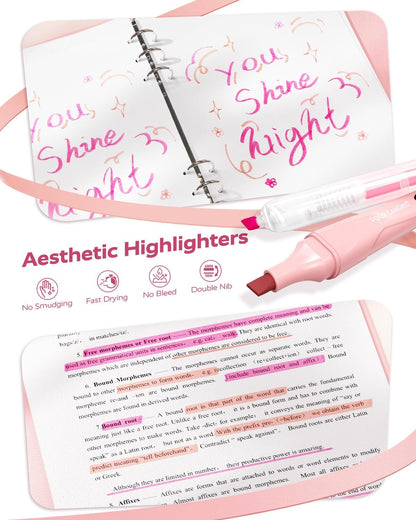 You
Shine
Night
You,
Shine
Night
Aesthetic Highlighters
No Smudging
Fast Drying
No Bleed
Double Nib
in matches/iz/.
5. Free morphemes or Free root —— The morphemes have complete meaning and can be
used as free grammatical units in sentences, e.g. cat, walk. They are identical with root words.
morphemes which are independent of other morphemes are considered to be free.
6. Bound Morphemes —— The morphemes cannot occur as separate words. They are
bound to other morphemes to form words, e.g. recollection (re+collect+ion) collect – free
morpheme re-and -ion are bound morphemes. include bound root and affix) Bound
morphemes are found in derived words.
7. Bound root —— A bound root is that part of the word that carries the fundamental
meaning just like a free root. Unlike a free root, it is a bound form and has to combine with
other morphemes to make words. Take -dict- for example: it conveys the meaning of "say or
speak" as a Latin root, but not as a word. With the prefix pre- (=before) we obtain the verb
predict meaning "tell beforehand". Contradict " speak against". Bound roots are either Latin
or Greek.
Although they are limited in number, their productive power is amazing.
8. Affixes —— Affixes are forms that are attached to words or word elements to modify
Almost affixes are bound morphemes.